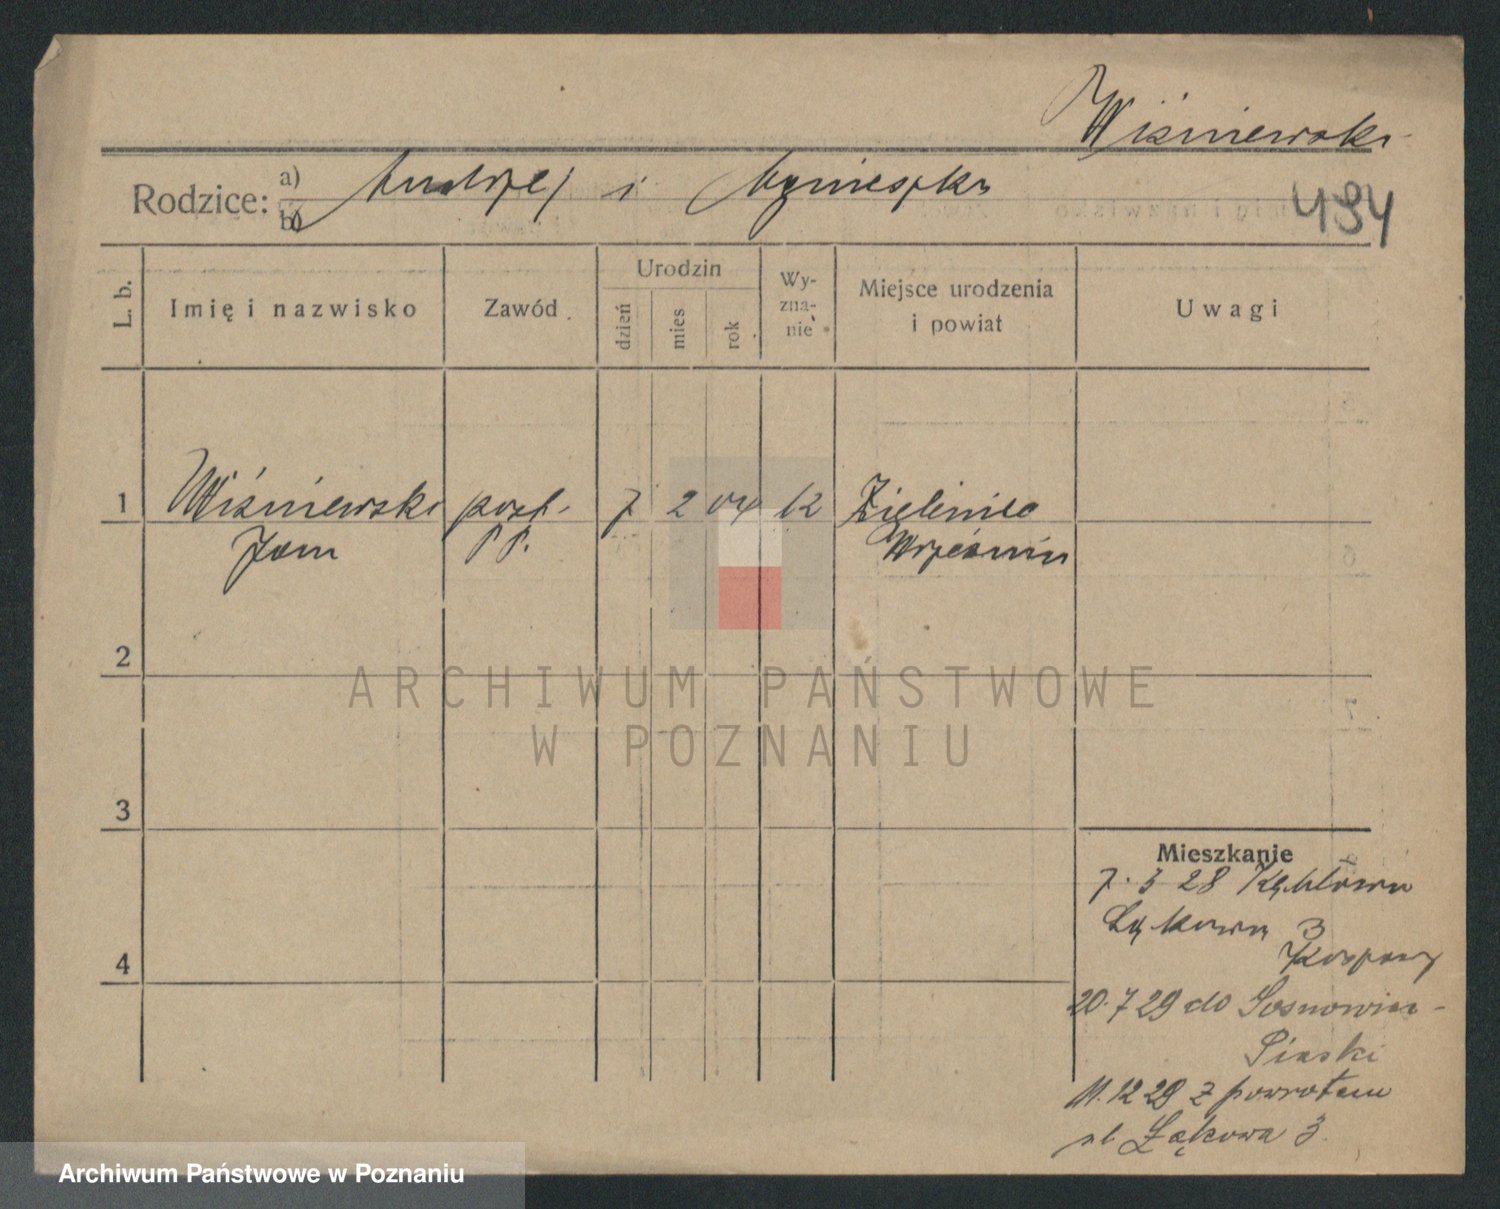 Wiśniewski
Rodzice: a) Andrzej i Agnieszka
b)
494
L. b.
Imię i nazwisko
Zawód
Urodzin
dzień
mies
rok
Wy-
zna-
nie
Miejsce urodzenia
i powiat
Uwagi
1 Wiśniewski 7 2 04 Zieliniec
Jan P.P. Września
2
3
4
Mieszkanie
7. 3 28
Łąkowa 3
20.7 29 do Sosnowiec-
Piaski
11.12 29 z powrotem
ul. Łąkowa 3.
ARCHIWUM PAŃSTWOWE
W POZNANIU
Archiwum Państwowe w Poznaniu